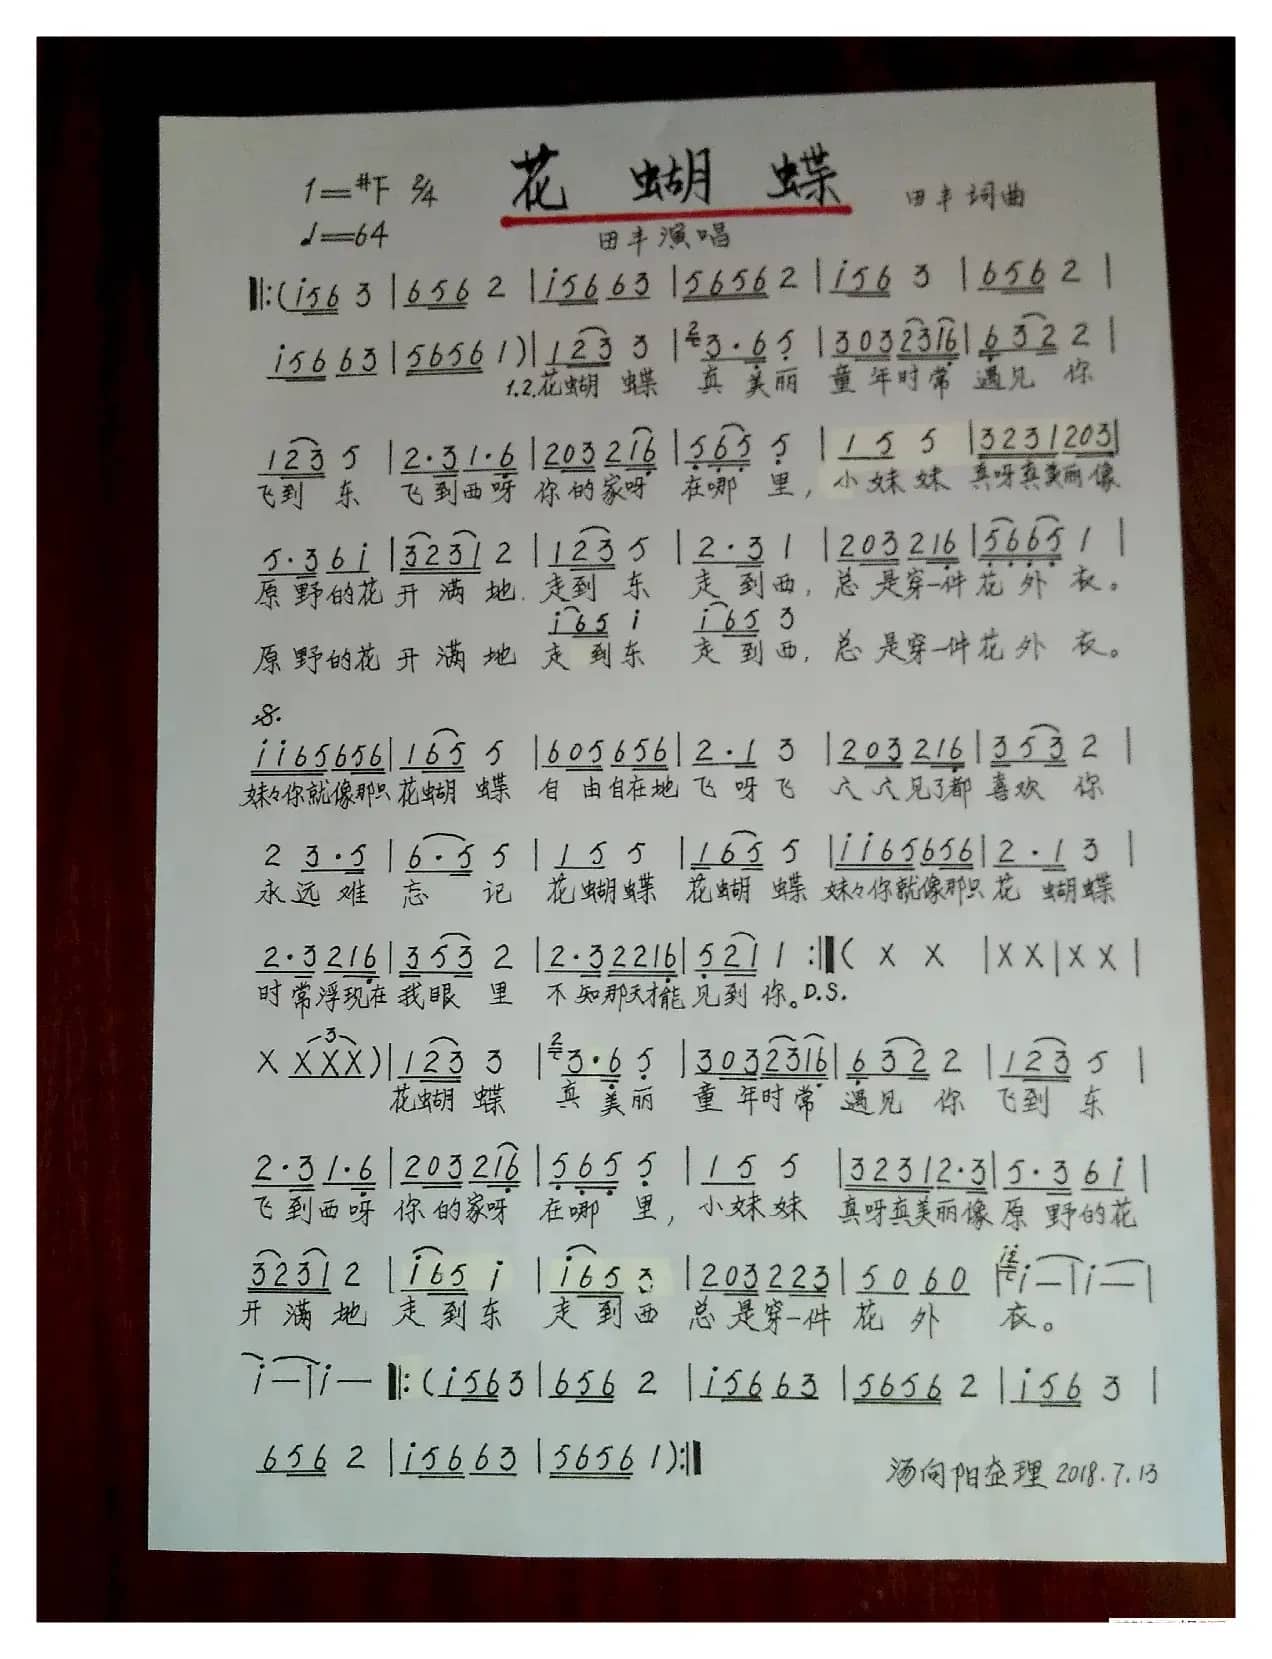 花 蝴 蝶
1=#F 2/4
田丰词曲
♩=64
田丰演唱
‖:(i56 3 | 656 2 | i5663 | 56562 | i56 3 | 656 2 |
i5663 | 56561) | 123 3 | 23·65 | 3032316 | 632 2 |
1.2.花蝴 蝶 真 美丽 童年时常 遇见 你
123 5 | 2·31·6 | 203216 | 565 5 | 15 5 | 3231203 |
飞到 东 飞到西呀 你的家呀 在哪 里, 小妹妹 真呀真美丽像
5·36i | 3231 2 | 123 5 | 2·3 1 | 203216 | 5665 1 |
原野的花 开满地. 走到 东 走到西, 总是穿一件 花外 衣。
i65 i i65 3
原野的花 开满地 走到东 走到西, 总是穿一件 花外 衣。
𝄋
ii65656 | 165 5 | 605656 | 2·1 3 | 203216 | 353 2 |
妹々你就像那只 花蝴 蝶 自由自在地 飞呀飞 人人见了都 喜欢 你
2 3·5 | 6·5 5 | 15 5 | 165 5 | ii65656 | 2·1 3 |
永远难 忘 记 花蝴蝶 花蝴 蝶 妹々你就像那只 花 蝴蝶
2·3216 | 353 2 | 2·32216 | 521 1 :‖( X X | X X | X X |
时常浮现在 我眼 里 不知那天才能 见到 你。D.S.
X XXX) | 123 3 | 23·65 | 3032316 | 632 2 | 123 5 |
3
花蝴 蝶 真 美丽 童年时常 遇见 你 飞到 东
2·31·6 | 203216 | 565 5 | 15 5 | 32312·3 | 5·36i |
飞到西呀 你的家呀 在哪 里, 小妹妹 真呀真美丽像 原野的花
3231 2 | i65 i | i65 3 | 203223 | 5060 | i2i— | i— |
开满地 走到东 走到西 总是穿一件 花外 衣。
i— | i— ‖:(i563 | 656 2 | i5663 | 56562 | i56 3 |
656 2 | i5663 | 56561):‖
汤向阳整理 2018.7.13